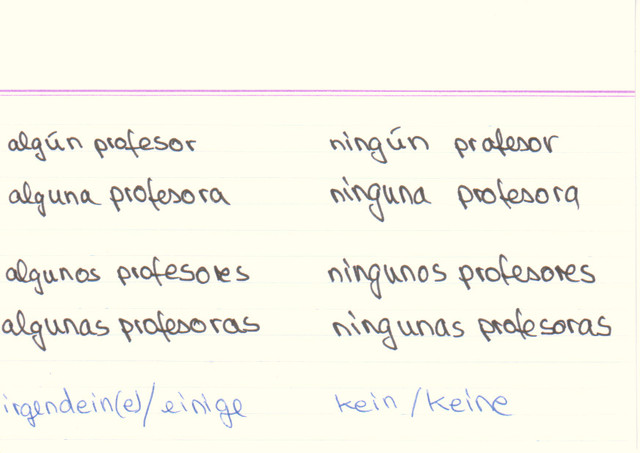 algún profesor ningún profesor
alguna profesora ninguna profesora
algunos profesores ningunos profesores
algunas profesoras ningunas profesoras
irgendein(e)/einige kein/keine